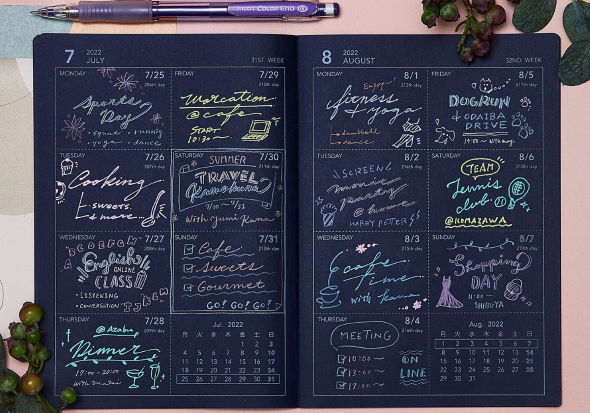 PILOT COLOR ENO
7
2022
JULY
31ST WEEK
MONDAY 7/25
206th day
Sports
Day
• square • running
• yoga • dance
FRIDAY 7/29
210th day
Worcation
@ cafe
START
10:30~
TUESDAY 7/26
207th day
Cooking
sweets
& more
SATURDAY 7/30
211th day
SUMMER
TRAVEL
Kamakura
7/30 ~ 7/31
with Yumi Kana
WEDNESDAY 7/27
208th day
ABCDEFGH
English
ONLINE
CLASS
• LISTENING
• CONVERSATION
SUNDAY 7/31
212th day
Cafe
Sweets
Gourmet
GO! GO! GO!
THURSDAY 7/28
209th day
@ Azabu
Dinner
Jul. 2022
月 火 水 木 金 土 日
1 2 3
4 5 6 7 8 9 10
11 12 13 14 15 16 17
18 19 20 21 22 23 24
25 26 27 28 29 30 31
8
2022
AUGUST
32ND WEEK
MONDAY 8/1
213th day
Enjoy!
fitness
& yoga
→ dumbbell
→ dance
FRIDAY 8/5
217th day
DOGRUN
& ODAIBA
DRIVE
TUESDAY 8/2
214th day
SCREEN
movie
party
@ home
HARRY POTTER
SATURDAY 8/6
218th day
TEAM
Tennis
club
@KOMAZAWA
WEDNESDAY 8/3
215th day
Cafe
Time
with Kana
SUNDAY 8/7
219th day
Shopping
DAY
SHIBUYA
THURSDAY 8/4
216th day
MEETING
10:00~
13:00~
17:00~
ON
LINE
Aug. 2022
月 火 水 木 金 土 日
1 2 3 4 5 6 7
8 9 10 11 12 13 14
15 16 17 18 19 20 21
22 23 24 25 26 27 28
29 30 31